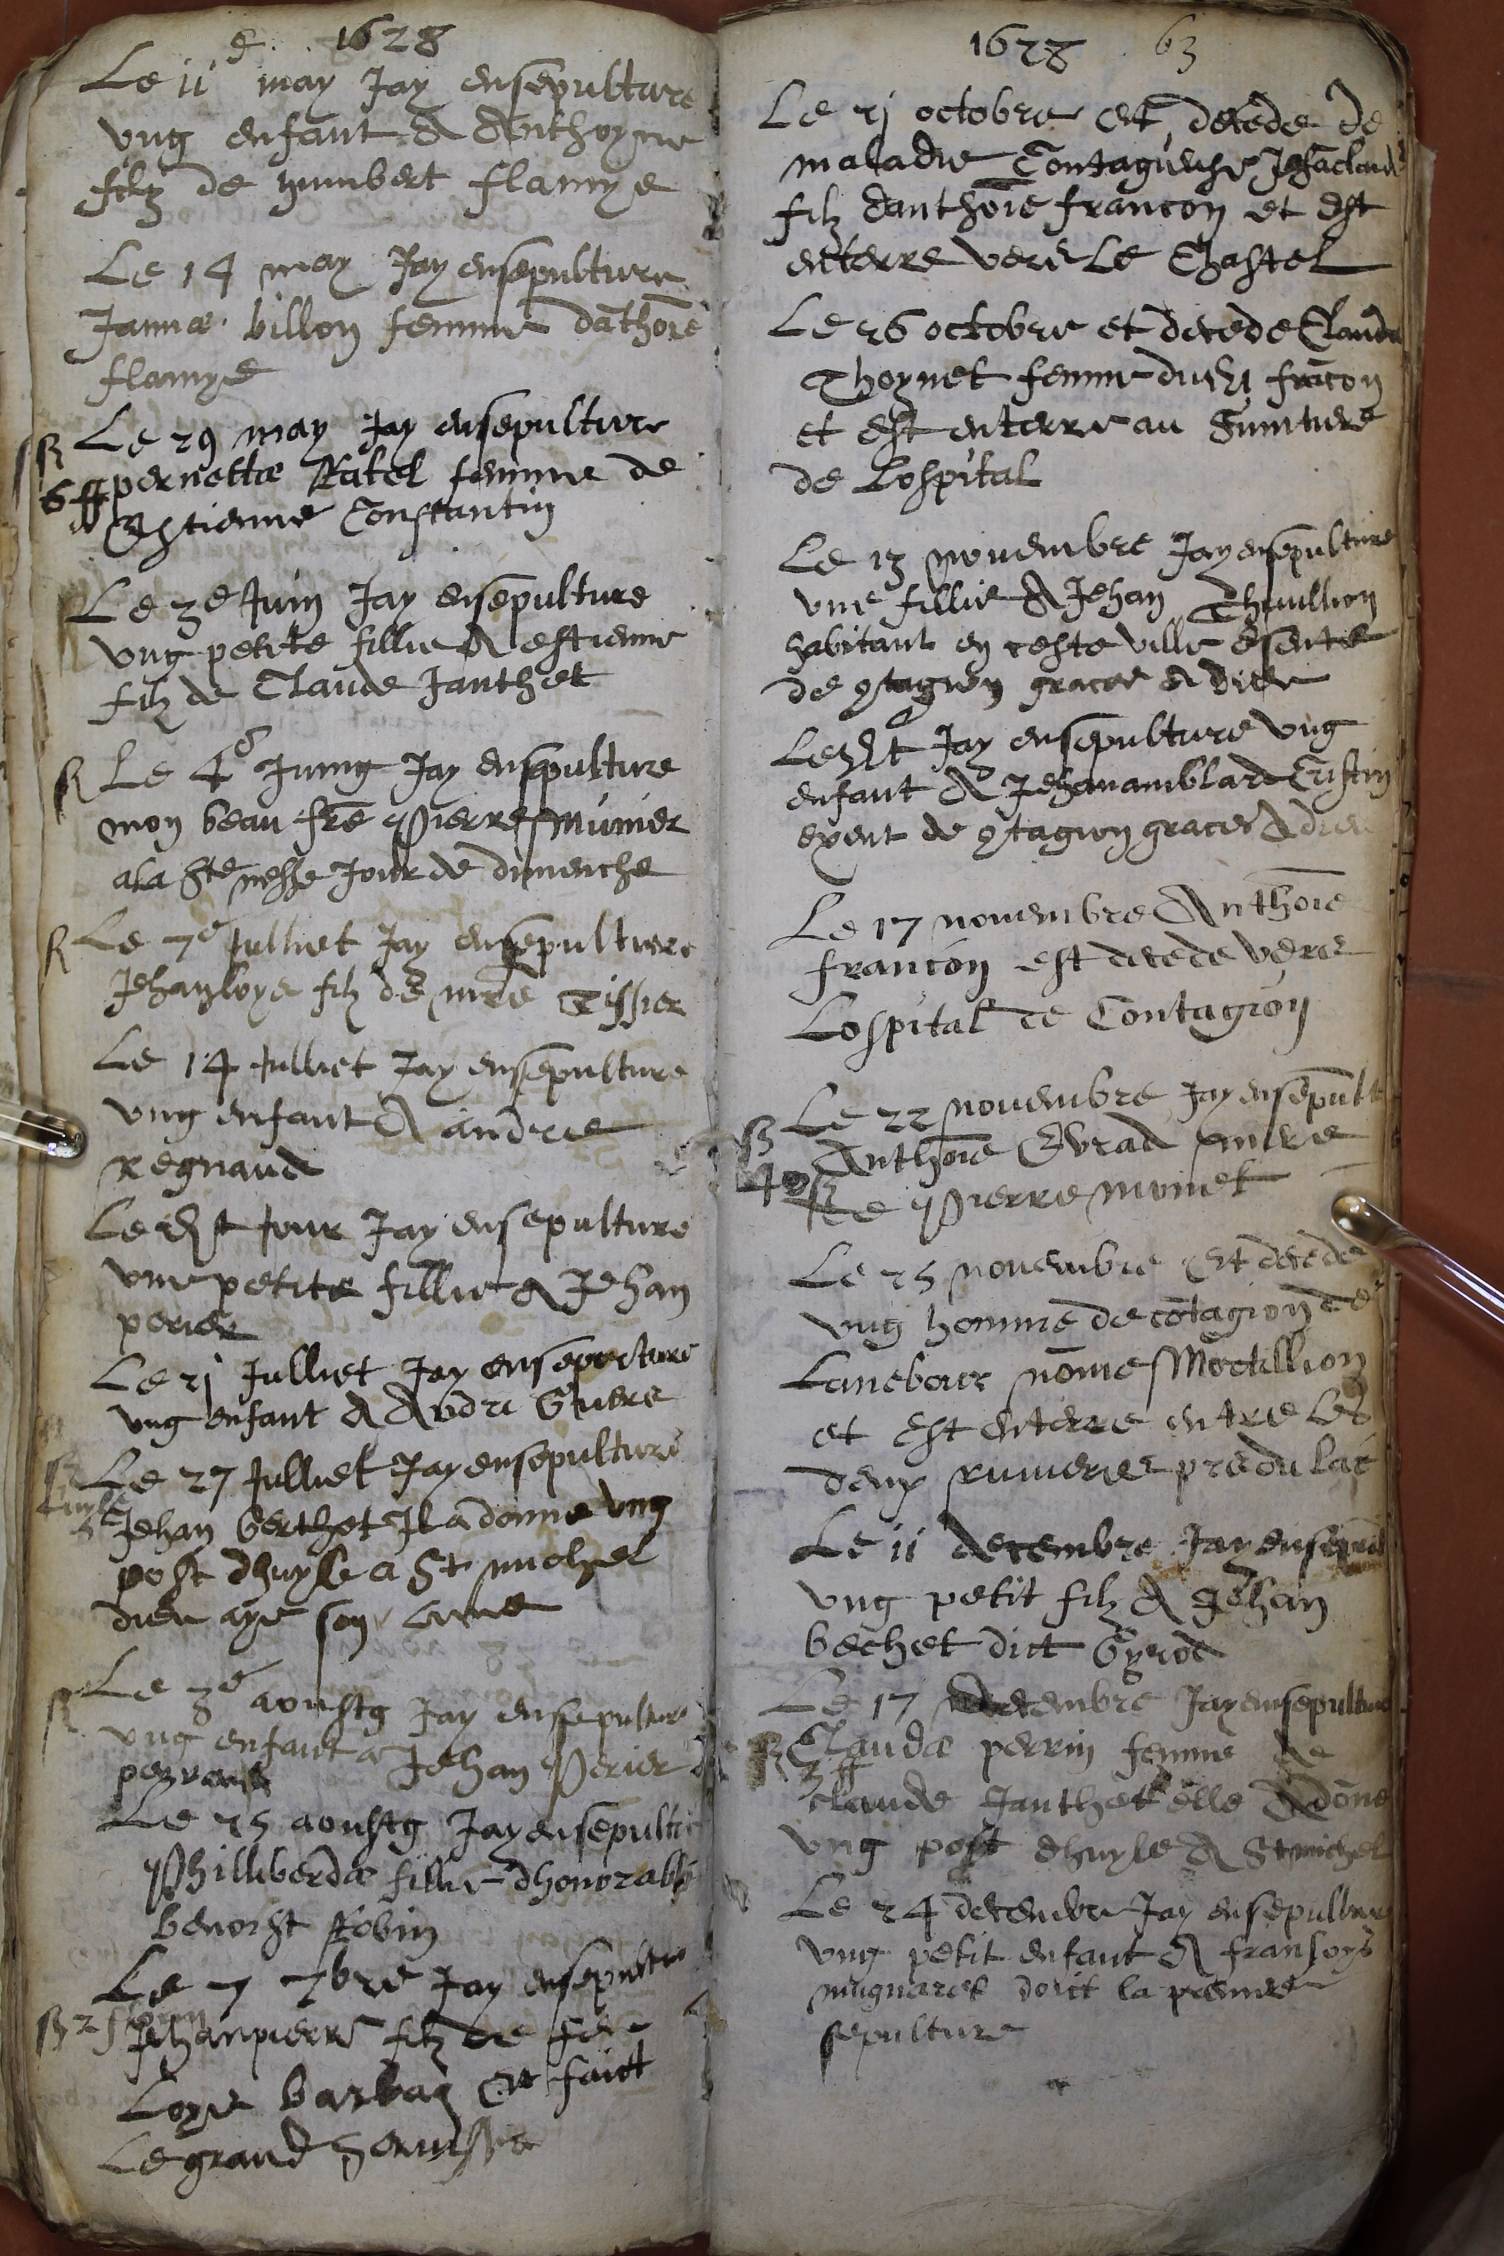 1628
Le 11 may Jay ensepulture
ung enfant A Anthoyne
filz de humbert flamye
Le 14 may Jay ensepulture
Jannæ billon femme danthoie
flamye
Le 29 may Jay ensepulture
pernettæ Ratel femme de
Estienne Constantin
Le 3e Juin Jay ensepulture
ung petite fillie A estienne
filz de Claude Janthet
Le 4e Juing Jay ensepulture
mon beau fre Pierre Munier
a la Ste messe Jour de dimenche
Le 7e Julliet Jay ensepulture
Jehan loye filz de mre Tissier
Le 14 Julliet Jay ensepulture
ung enfant A andree
Regnaud
Le dit Jour Jay ensepulture
une petite fillie A Jehan
perier
Le 21 Julliet Jay ensepulture
ung enfant A Andre
Le 27 Julliet Jay ensepulture
Jehan berthet Il a donne ung
post dhuyle a St michel
dieu aye son ame
Le 3e aoustg Jay ensepulture
ung enfant a Jehan Perier
Le 25 aoustg Jay ensepultu
Philliberdæ fillie dhonorable
benoist Robin
Le 7 7bre Jay ensepultu
Jehanpierre filz de feu
Loye barbaz Et faict
Le grand
1628 63
Le 21 octobre Est decede de
maladie Contagieuse
filz danthoie francon et est
enterre vers Le Chastel
Le 26 octobre et decede Clauda
Thoynet femme dudit francon
et est enterre au
de Lospital
Le 13 novembre Jay ensepulture
une fillie A Jehan
habitant en ceste ville esente
de 9tagion grace A dieu
Ledit Jay ensepulture ung
enfant A Jehan amblard
exent de 9tagion graces A dieu
Le 17 novembre Anthoie
francon est decede vers
Lospital de Contagion
Le 22 novembre Jay ensepult
Anthoie Evrad
de Pierre monet
Le 25 novembre Est decede
ung homme de contagion de
nome Mortillion
et est enterre entre les
deux rivieres pre du lac
Le 11 decembre Jay ensepul
ung petit filz A Jehan
bechet dict Gyrod
Le 17 decembre Jay ensepulture
Claudæ perrin femme de
claude Janthet elle A done
ung post dhuyle A St michel
Le 24 decembre Jay ensepulture
ung petit enfant A fransoys
doict la premie
sepulture